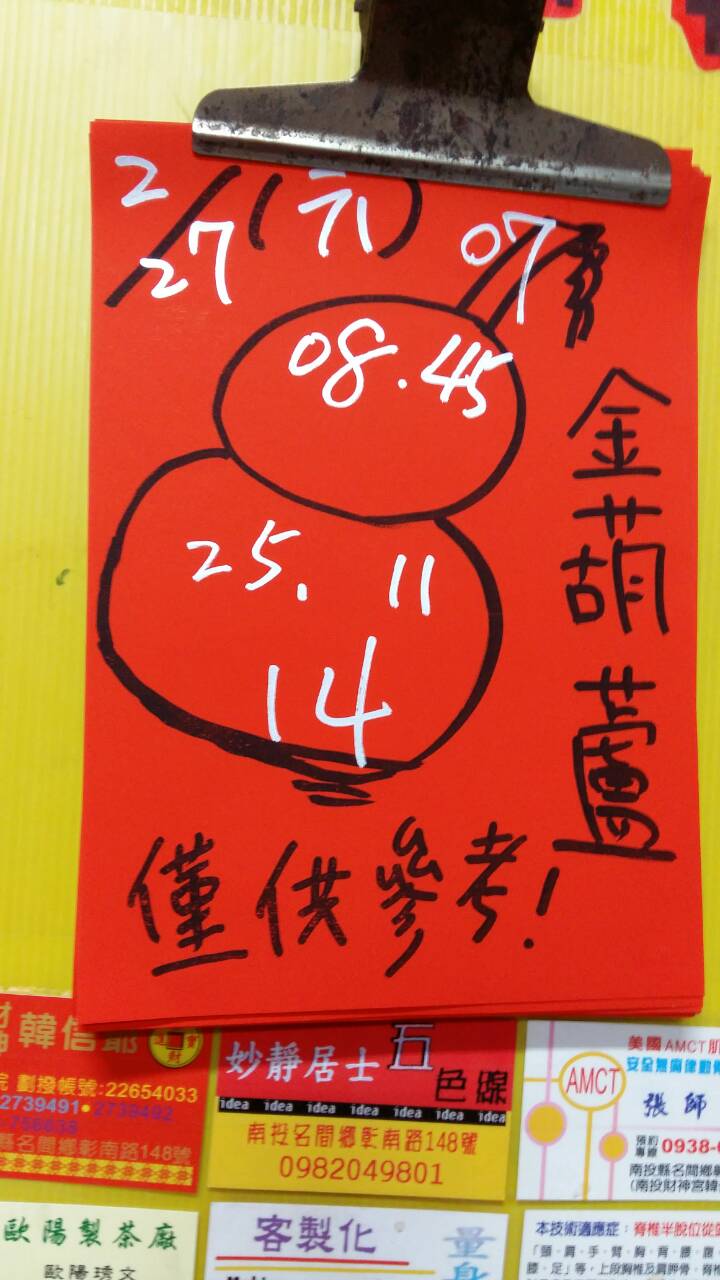 2/27 (六) 07
08.45
25. 11
14
金葫蘆
僅供參考!
韓信爺
劃撥帳號:22654033
2739491•2739492
縣名間鄉彰南路148號
妙靜居士 五色線
idea idea idea idea idea idea idea
南投名間鄉彰南路148號
0982049801
美國AMCT
AMCT
張師
預約專線 0938-
南投縣名間鄉
(南投財神宮韓
歐陽製茶廠
歐陽琇文
客製化
量身
本技術適應症:脊椎半脫位從
「頭、肩、手、臂、胸、背、腰、腹
膝、足」等,上段胸椎及肩胛骨、脊椎